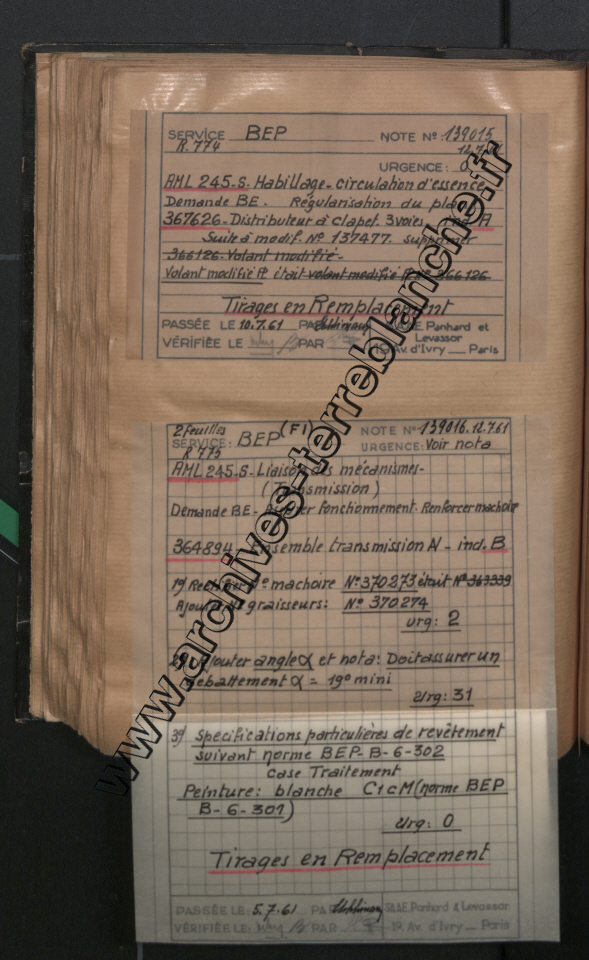 SERVICE BEP NOTE Nº: 139015
R. 774 12.7.
URGENCE: 0
AML 245.S. Habillage - circulation d'essence
Demande BE. Régularisation du plan
367626 - Distributeur à clapet 3 voies A
Suite à modif. Nº 137477. supprimer
366126. Volant modifié -
Volant modifié était volant modifié 366126
Tirages en Remplacement
PASSÉE LE 10.7.61 PAR S.A.A.E. Panhard et
Levassor
VÉRIFIÉE LE PAR 19 Av. d'Ivry __ Paris
2 feuilles (F1) NOTE Nº 139016. 12.7.61
SERVICE: BEP URGENCE: Voir nota
R 775
AML 245.S. Liaison des mécanismes -
(Transmission)
Demande BE - fonctionnement. Renforcer machoire
364894 - Ensemble transmission N - ind. B
1º) Nº machoire Nº 370273 était Nº 363339
Ajouter Nº graisseurs: Nº 370274
Urg: 2
2º) Ajouter angle α et nota: Doit assurer un
débattement α = 19º mini
Urg: 31
3º) Spécifications particulières de revêtement
suivant norme BEP-B-6-302
case Traitement
Peinture: blanche C1cM (norme BEP
B-6-301)
Urg: 0
Tirages en Remplacement
PASSÉE LE: 5.7.61 PAR S.A.A.E. Panhard & Levassor
VÉRIFIÉE LE: PAR 19, Av. d'Ivry __ Paris
www.archives-terreblanche.fr